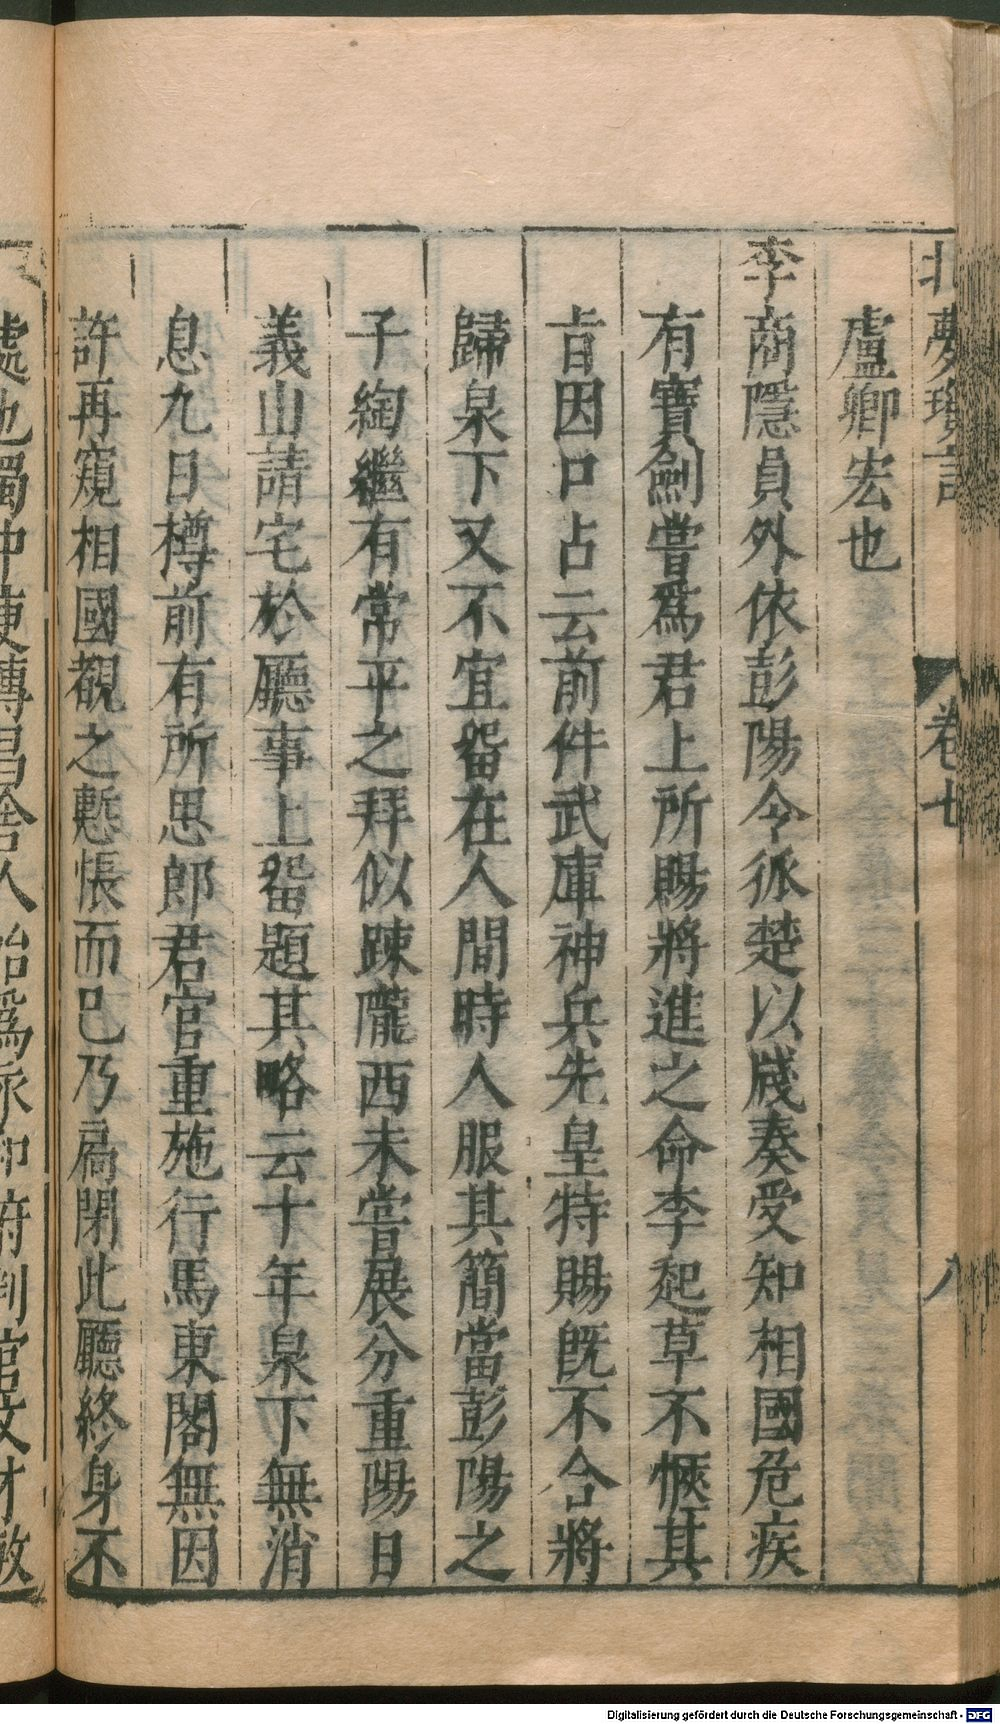 北夢瑣言 卷七 八
盧卿宏也
李商隱員外依彭陽令狐楚以牋奏受知相國危疾
有寶劍嘗爲君上所賜將進之命李起草不愜其
旨因口占云前件武庫神兵先皇特賜旣不合將
歸泉下又不宜畱在人間時人服其簡當彭陽之
子綯繼有常平之拜似踈隴西未嘗展分重陽日
義山請宅於廳事上畱題其略云十年泉下無消
息九日樽前有所思郎君官重施行馬東閣無因
許再窺相國覩之慙悵而已乃扃閉此廳終身不
處也獨沖更轉昌舍人始爲判官文才敏
Digitalisierung gefördert durch die Deutsche Forschungsgemeinschaft - DFG